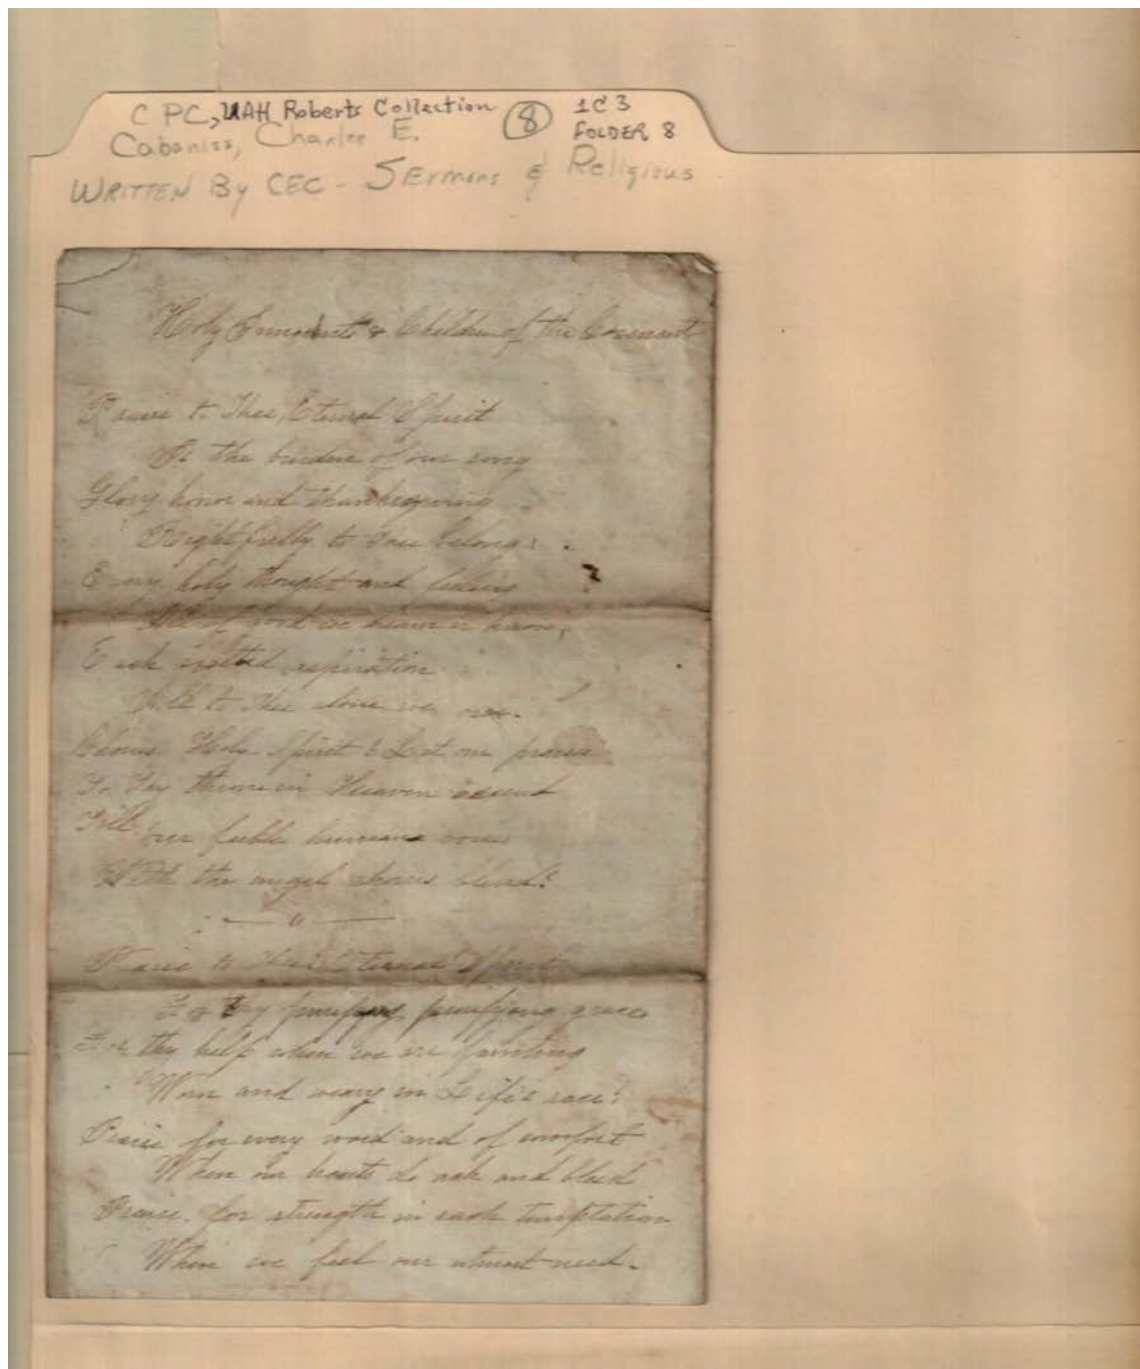 C PC, UAH Roberts Collection 8 1C3
Cabaniss, Charles E. FOLDER 8
WRITTEN By CEC - SErmons & Religious
Holy Innocents & Children of the Covenant
Praise to Thee, Eternal Spirit
Is the burden of our song
Glory honor and thanksgiving
Rightfully to Thee belong:
Every holy thought and feeling
All of good we
Each exalted aspiration
All to Thee alone we owe.
Holy Spirit! Let our praises
To Thy throne in Heaven ascend
Till our feeble human voices
With the angel choirs blend!
Praise to Thee Eternal Spirit
For thy purifying grace
For thy help when we are fainting
Worn and weary in Life's race!
Praise for every word and of comfort
When our hearts do ache and bleed
Praise for strength in each temptation
When we feel our utmost need.